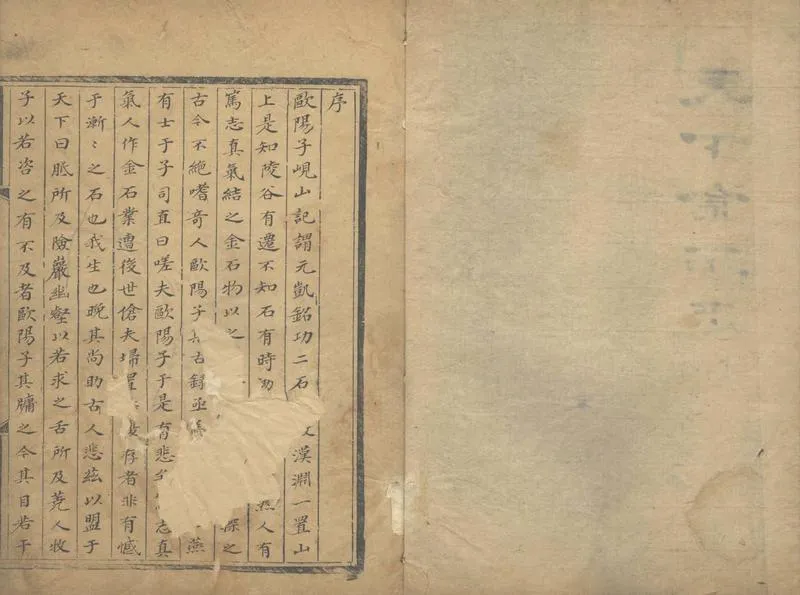 序
歐陽子峴山記謂元凱銘功二石漢淵一置山
上是知陵谷有遷不知石有時人有
篤志真氣結之金石物以之之
古今不絶嗜奇人歐陽子古録亟燕
有士于子司直曰嗟夫歐陽子于是有悲志真
氣人作金石業遭後世傖夫埽存者非有憾
于漸〻之石也我生也晚其尚助古人悲茲以盟于
天下曰所及險巖幽壑以若求之舌所及蕘人收
子以若咨之有不及者歐陽子其牖之今其目若干